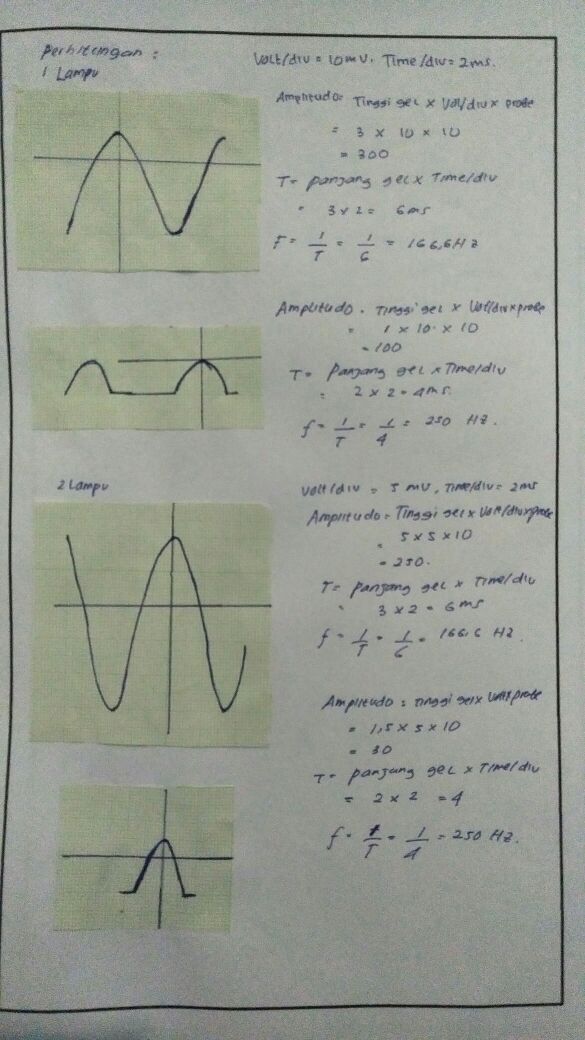 Perhitungan :
1 Lampu
Volt/div = 10 mV. Time/div = 2 ms.
Amplitudo = Tinggi gel x Vol/div x probe
= 3 x 10 x 10
= 300
T = panjang gel x Time/div
= 3 x 2 = 6 ms
F = 1/T = 1/6 = 166,6 Hz
Amplitudo = Tinggi gel x Volt/div x probe
= 1 x 10 x 10
= 100
T = Panjang gel x Time/div
= 2 x 2 = 4 ms.
f = 1/T = 1/4 = 250 Hz.
2 Lampu
Volt/div = 5 mV, Time/div = 2 ms
Amplitudo = Tinggi gel x Volt/div x probe
= 5 x 5 x 10
= 250.
T = panjang gel x Time/div
= 3 x 2 = 6 ms
f = 1/T = 1/6 = 166,6 Hz.
Amplitudo = Tinggi gel x Volt x probe
= 1,5 x 5 x 10
= 30
T = panjang gel x Time/div
= 2 x 2 = 4
f = 1/T = 1/4 = 250 Hz.